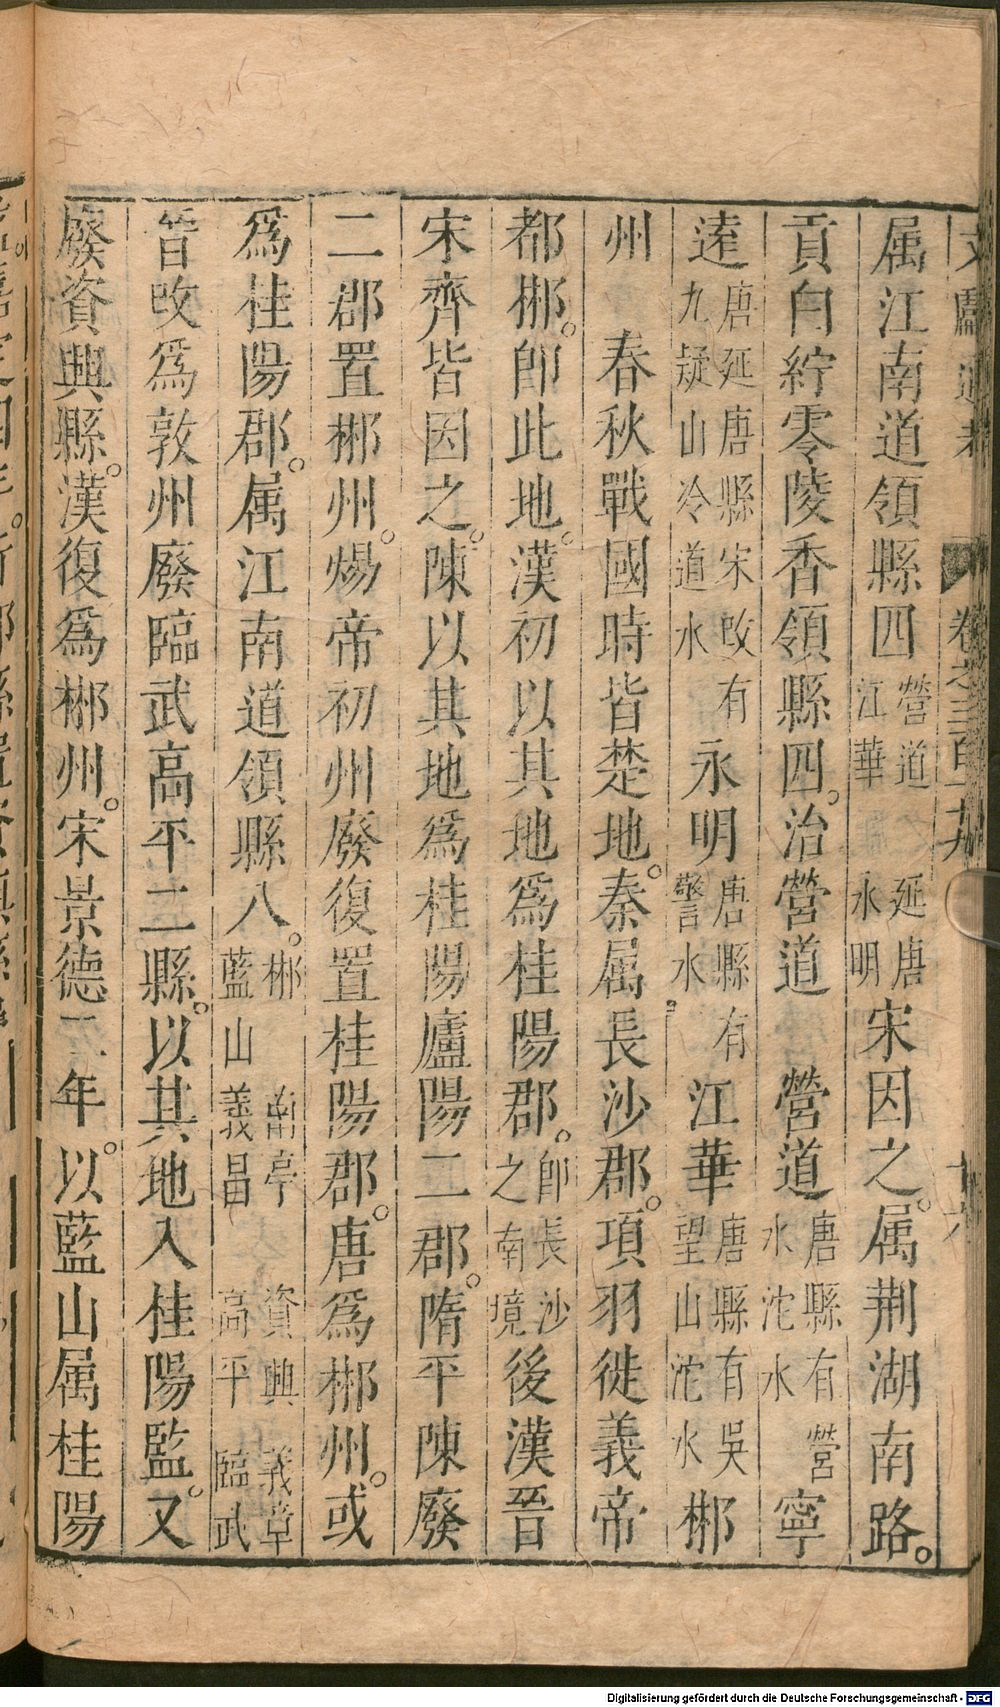 文獻通考 卷之三百十九 十六
属江南道領縣四營道江華延唐永明宋因之。属荆湖南路。
貢白紵零陵香領縣四。治營道 營道唐縣有營水沱水寧
逺唐延唐縣宋改九疑山冷道水有永明唐縣有䃘水江華唐縣有吳望山沱水郴
州 春秋戰國時皆楚地。秦属長沙郡。項羽徙義帝
都郴。即此地。漢初以其地為桂陽郡。即長沙之南境後漢晉
宋齊皆因之。陳以其地爲桂陽廬陽二郡。隋平陳廢
二郡置郴州。煬帝初州廢復置桂陽郡。唐爲郴州。或
爲桂陽郡。属江南道領縣八。郴藍山南亭義昌資興高平義章臨武
晉改爲敦州廢臨武高平二縣。以其地入桂陽監。又
廢資興縣。漢復爲郴州。宋景德二年。以藍山属桂陽
Digitalisierung gefördert durch die Deutsche Forschungsgemeinschaft - DFG